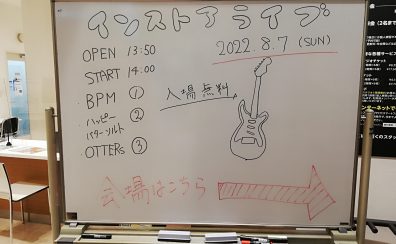 インストアライブ
OPEN 13:50
2022.8.7 (SUN)
START 14:00
BPM ①
入場無料
ハッピー
バターソルト ②
OTTERs ③
会場はこちら